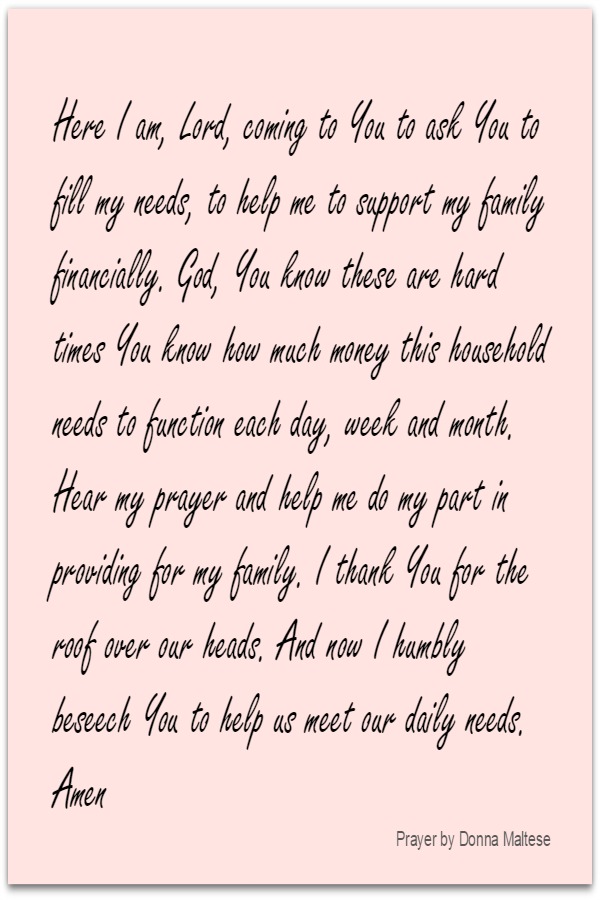 Here I am, Lord, coming to You to ask You to
fill my needs, to help me to support my family
financially. God, You know these are hard
times You know how much money this household
needs to function each day, week and month.
Hear my prayer and help me do my part in
providing for my family. I thank You for the
roof over our heads. And now I humbly
beseech You to help us meet our daily needs.
Amen
Prayer by Donna Maltese